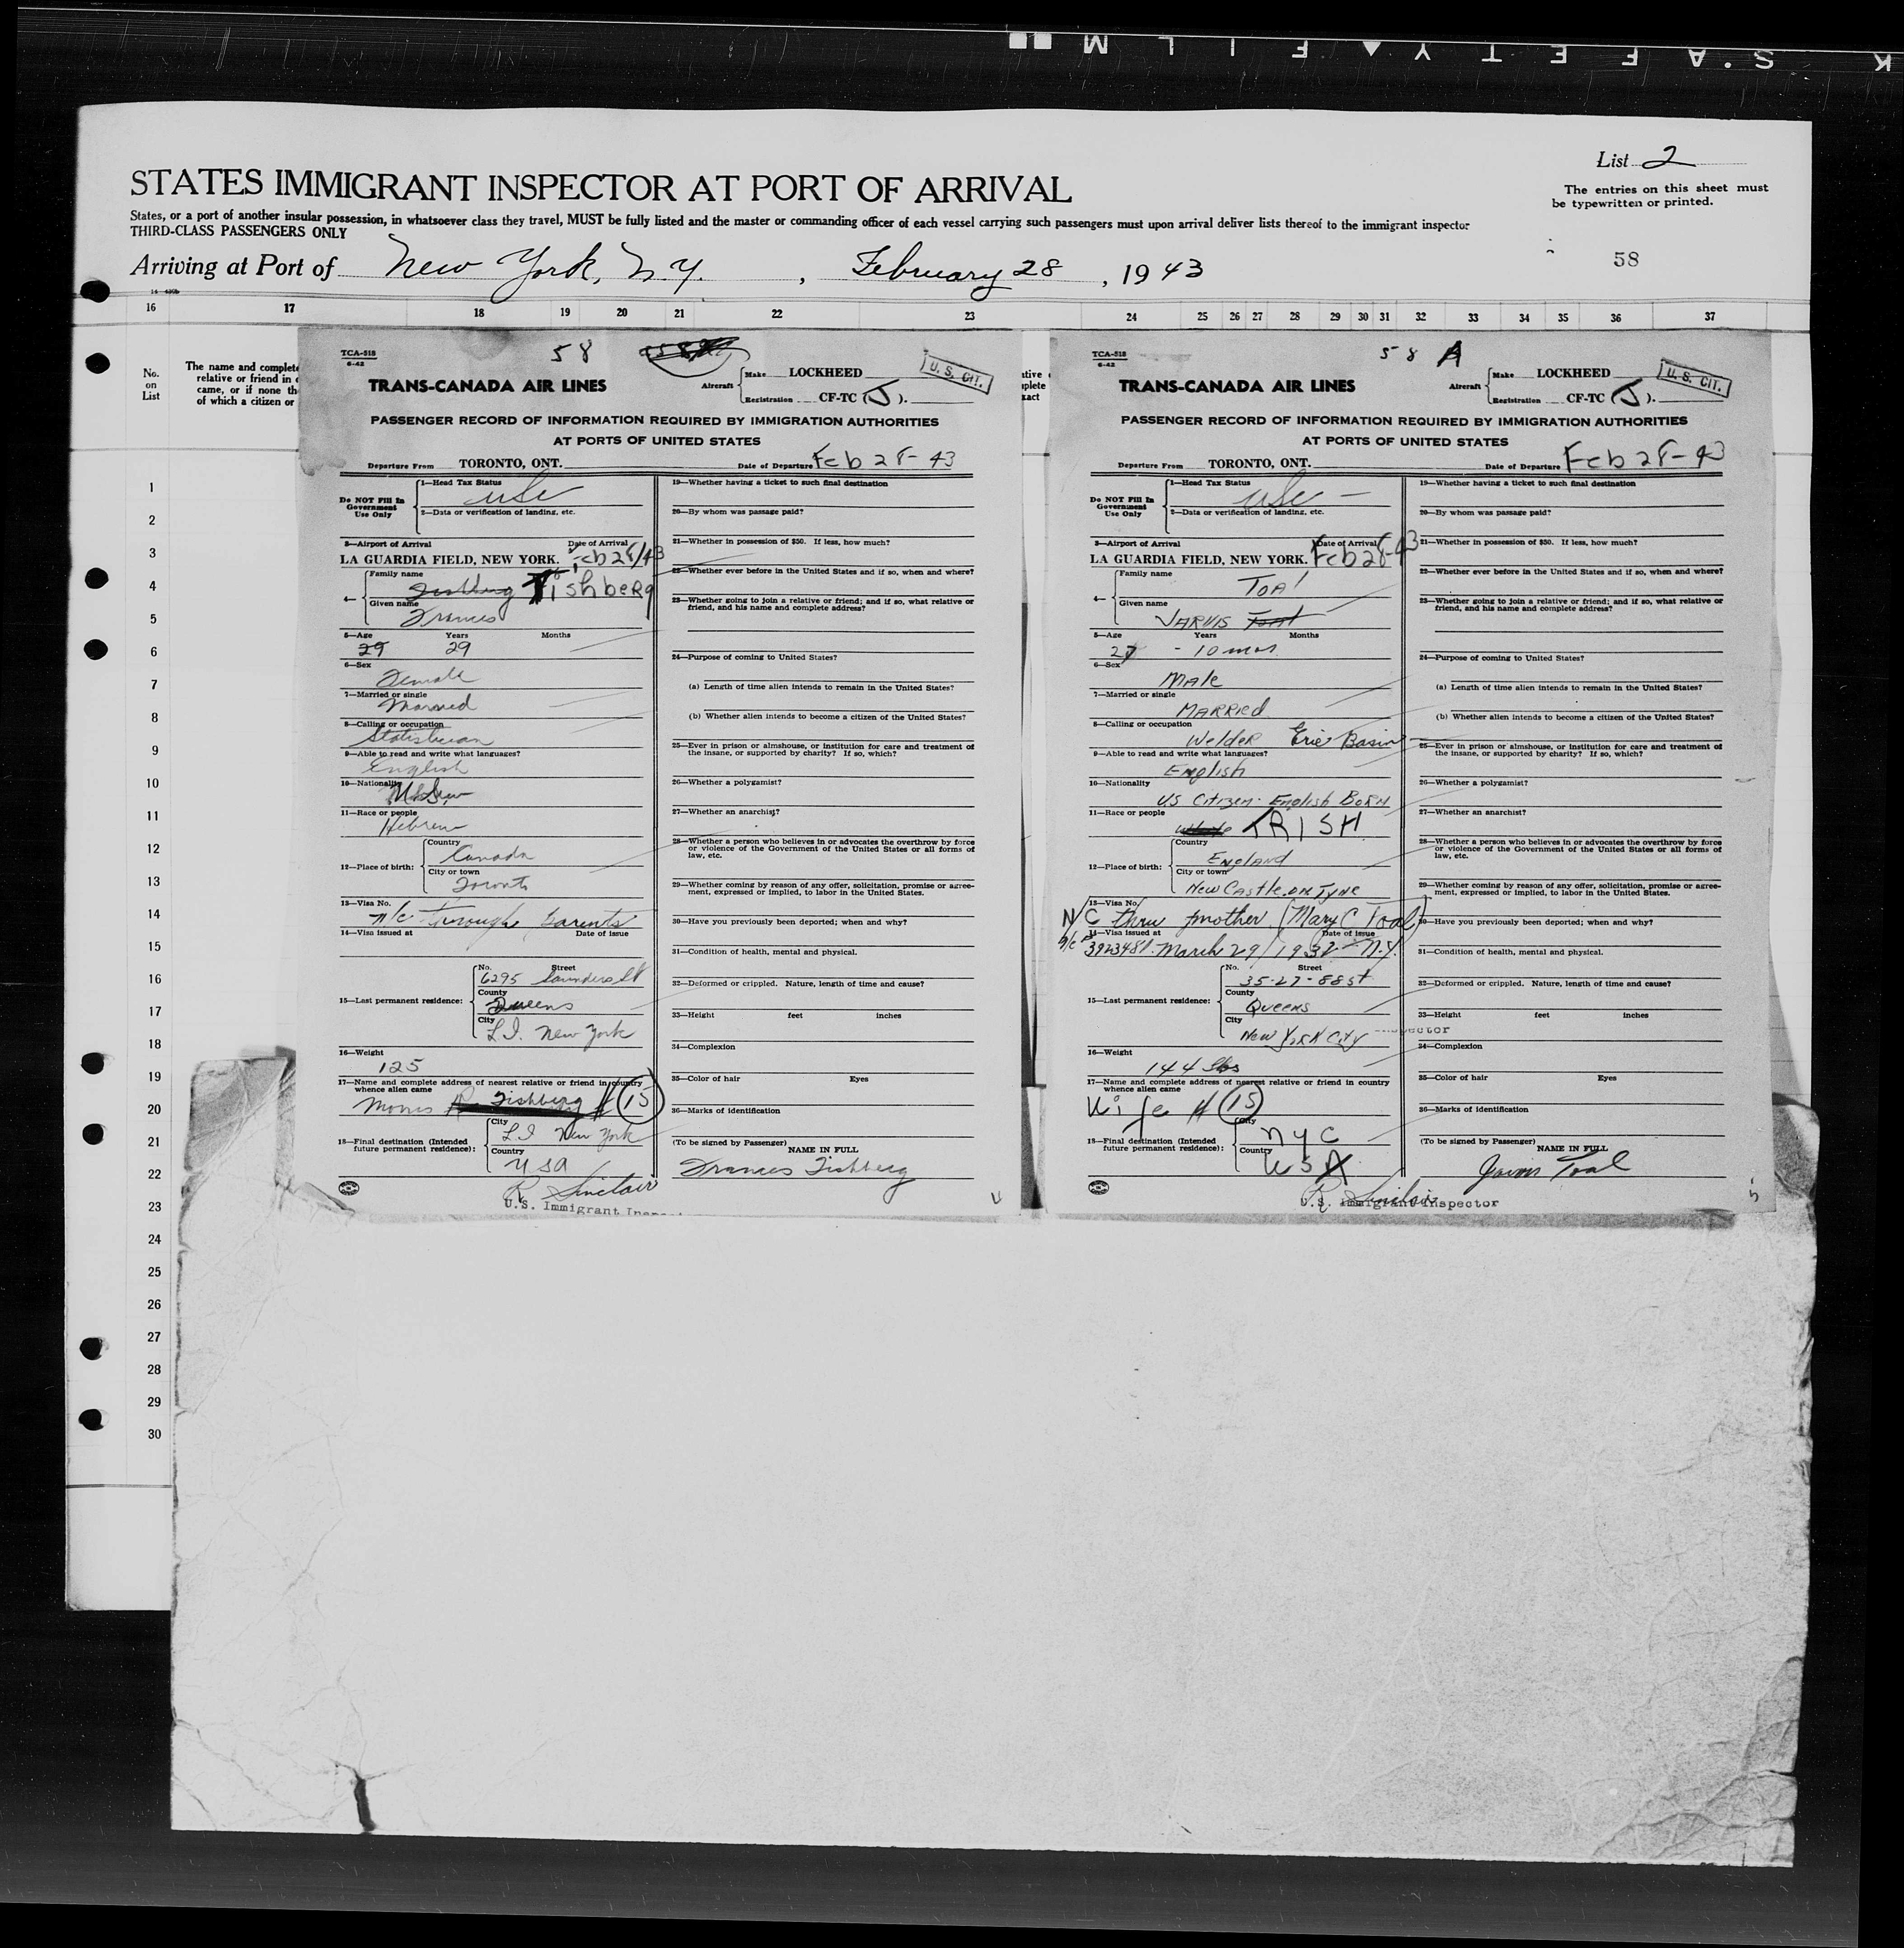 K S.A F E T Y ▲ F I L M ■■
List 2
STATES IMMIGRANT INSPECTOR AT PORT OF ARRIVAL
The entries on this sheet must
be typewritten or printed.
States, or a port of another insular possession, in whatsoever class they travel, MUST be fully listed and the master or commanding officer of each vessel carrying such passengers must upon arrival deliver lists thereof to the immigrant inspector
THIRD-CLASS PASSENGERS ONLY
58
Arriving at Port of New York, N.Y. , February 28 , 1943
16 17 18 19 20 21 22 23 24 25 26 27 28 29 30 31 32 33 34 35 36 37
No.
on
List
The name and complete
relative or friend in
came, or if none th
of which a citizen or
1
2
3
4
5
6
7
8
9
10
11
12
13
14
15
16
17
18
19
20
21
22
23
24
25
26
27
28
29
30
TCA-518
6-42
58
TRANS-CANADA AIR LINES
Aircraft
Make LOCKHEED
Registration CF-TC (J).
U. S. CIT.
PASSENGER RECORD OF INFORMATION REQUIRED BY IMMIGRATION AUTHORITIES
AT PORTS OF UNITED STATES
Departure From TORONTO, ONT. Date of Departure Feb 28-43
Do NOT Fill In
Government
Use Only
1—Head Tax Status
USC
2—Data or verification of landing, etc.
3—Airport of Arrival Date of Arrival
LA GUARDIA FIELD, NEW YORK. Feb 28/43
4— Family name
Fishberg
Given name
Frances
5—Age Years Months
29 29
6—Sex
Female
7—Married or single
Married
8—Calling or occupation
Statistician
9—Able to read and write what languages?
English
10—Nationality
11—Race or people
Hebrew
12—Place of birth:
Country
Canada
City or town
Toronto
13—Visa No.
N/C through parents
14—Visa issued at Date of issue
15—Last permanent residence:
No. Street
6295 Saunders St
County
Queens
City
L.I. New York
16—Weight
125
17—Name and complete address of nearest relative or friend in country
whence alien came
Morris Fishberg # 15
18—Final destination (Intended
future permanent residence):
City
L.I New York
Country
USA
R. Sinclair
U.S. Immigrant
19—Whether having a ticket to such final destination
20—By whom was passage paid?
21—Whether in possession of $50. If less, how much?
22—Whether ever before in the United States and if so, when and where?
23—Whether going to join a relative or friend; and if so, what relative or
friend, and his name and complete address?
24—Purpose of coming to United States?
(a) Length of time alien intends to remain in the United States?
(b) Whether alien intends to become a citizen of the United States?
25—Ever in prison or almshouse, or institution for care and treatment of
the insane, or supported by charity? If so, which?
26—Whether a polygamist?
27—Whether an anarchist?
28—Whether a person who believes in or advocates the overthrow by force
or violence of the Government of the United States or all forms of
law, etc.
29—Whether coming by reason of any offer, solicitation, promise or agree-
ment, expressed or implied, to labor in the United States.
30—Have you previously been deported; when and why?
31—Condition of health, mental and physical.
32—Deformed or crippled. Nature, length of time and cause?
33—Height feet inches
34—Complexion
35—Color of hair Eyes
36—Marks of identification
(To be signed by Passenger)
NAME IN FULL
Frances Fishberg
TCA-518
6-42
58 A
TRANS-CANADA AIR LINES
Aircraft
Make LOCKHEED
Registration CF-TC (J).
U. S. CIT.
PASSENGER RECORD OF INFORMATION REQUIRED BY IMMIGRATION AUTHORITIES
AT PORTS OF UNITED STATES
Departure From TORONTO, ONT. Date of Departure Feb 28-43
Do NOT Fill In
Government
Use Only
1—Head Tax Status
USC —
2—Data or verification of landing, etc.
3—Airport of Arrival Date of Arrival
LA GUARDIA FIELD, NEW YORK. Feb 28-43
4— Family name
Toal
Given name
JARVIS Toal
5—Age Years Months
27 - 10 mos.
6—Sex
Male
7—Married or single
MARRIED
8—Calling or occupation
Welder Erie Basin
9—Able to read and write what languages?
English
10—Nationality
US Citizen - English Born
11—Race or people
White IRISH
12—Place of birth:
Country
England
City or town
New Castle on Tyne
13—Visa No.
N/C thru mother (Mary C Toal)
14—Visa issued at Date of issue
3923481 March 29/1932 N.Y.
15—Last permanent residence:
No. Street
35-27-88 St
County
Queens
City
New York City
16—Weight
144 lbs
17—Name and complete address of nearest relative or friend in country
whence alien came
Wife # 15
18—Final destination (Intended
future permanent residence):
City
NYC
Country
USA
R. Sinclair
U.S. Immigrant Inspector
19—Whether having a ticket to such final destination
20—By whom was passage paid?
21—Whether in possession of $50. If less, how much?
22—Whether ever before in the United States and if so, when and where?
23—Whether going to join a relative or friend; and if so, what relative or
friend, and his name and complete address?
24—Purpose of coming to United States?
(a) Length of time alien intends to remain in the United States?
(b) Whether alien intends to become a citizen of the United States?
25—Ever in prison or almshouse, or institution for care and treatment of
the insane, or supported by charity? If so, which?
26—Whether a polygamist?
27—Whether an anarchist?
28—Whether a person who believes in or advocates the overthrow by force
or violence of the Government of the United States or all forms of
law, etc.
29—Whether coming by reason of any offer, solicitation, promise or agree-
ment, expressed or implied, to labor in the United States.
30—Have you previously been deported; when and why?
31—Condition of health, mental and physical.
32—Deformed or crippled. Nature, length of time and cause?
33—Height feet inches
34—Complexion
35—Color of hair Eyes
36—Marks of identification
(To be signed by Passenger)
NAME IN FULL
Jarvis Toal